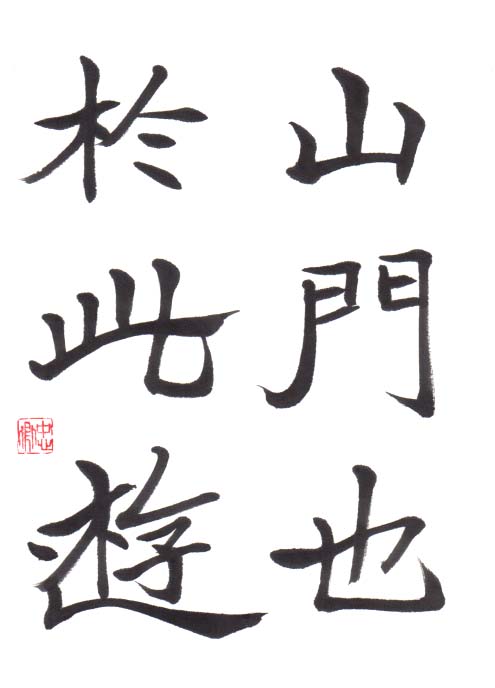 山門也
於此遊